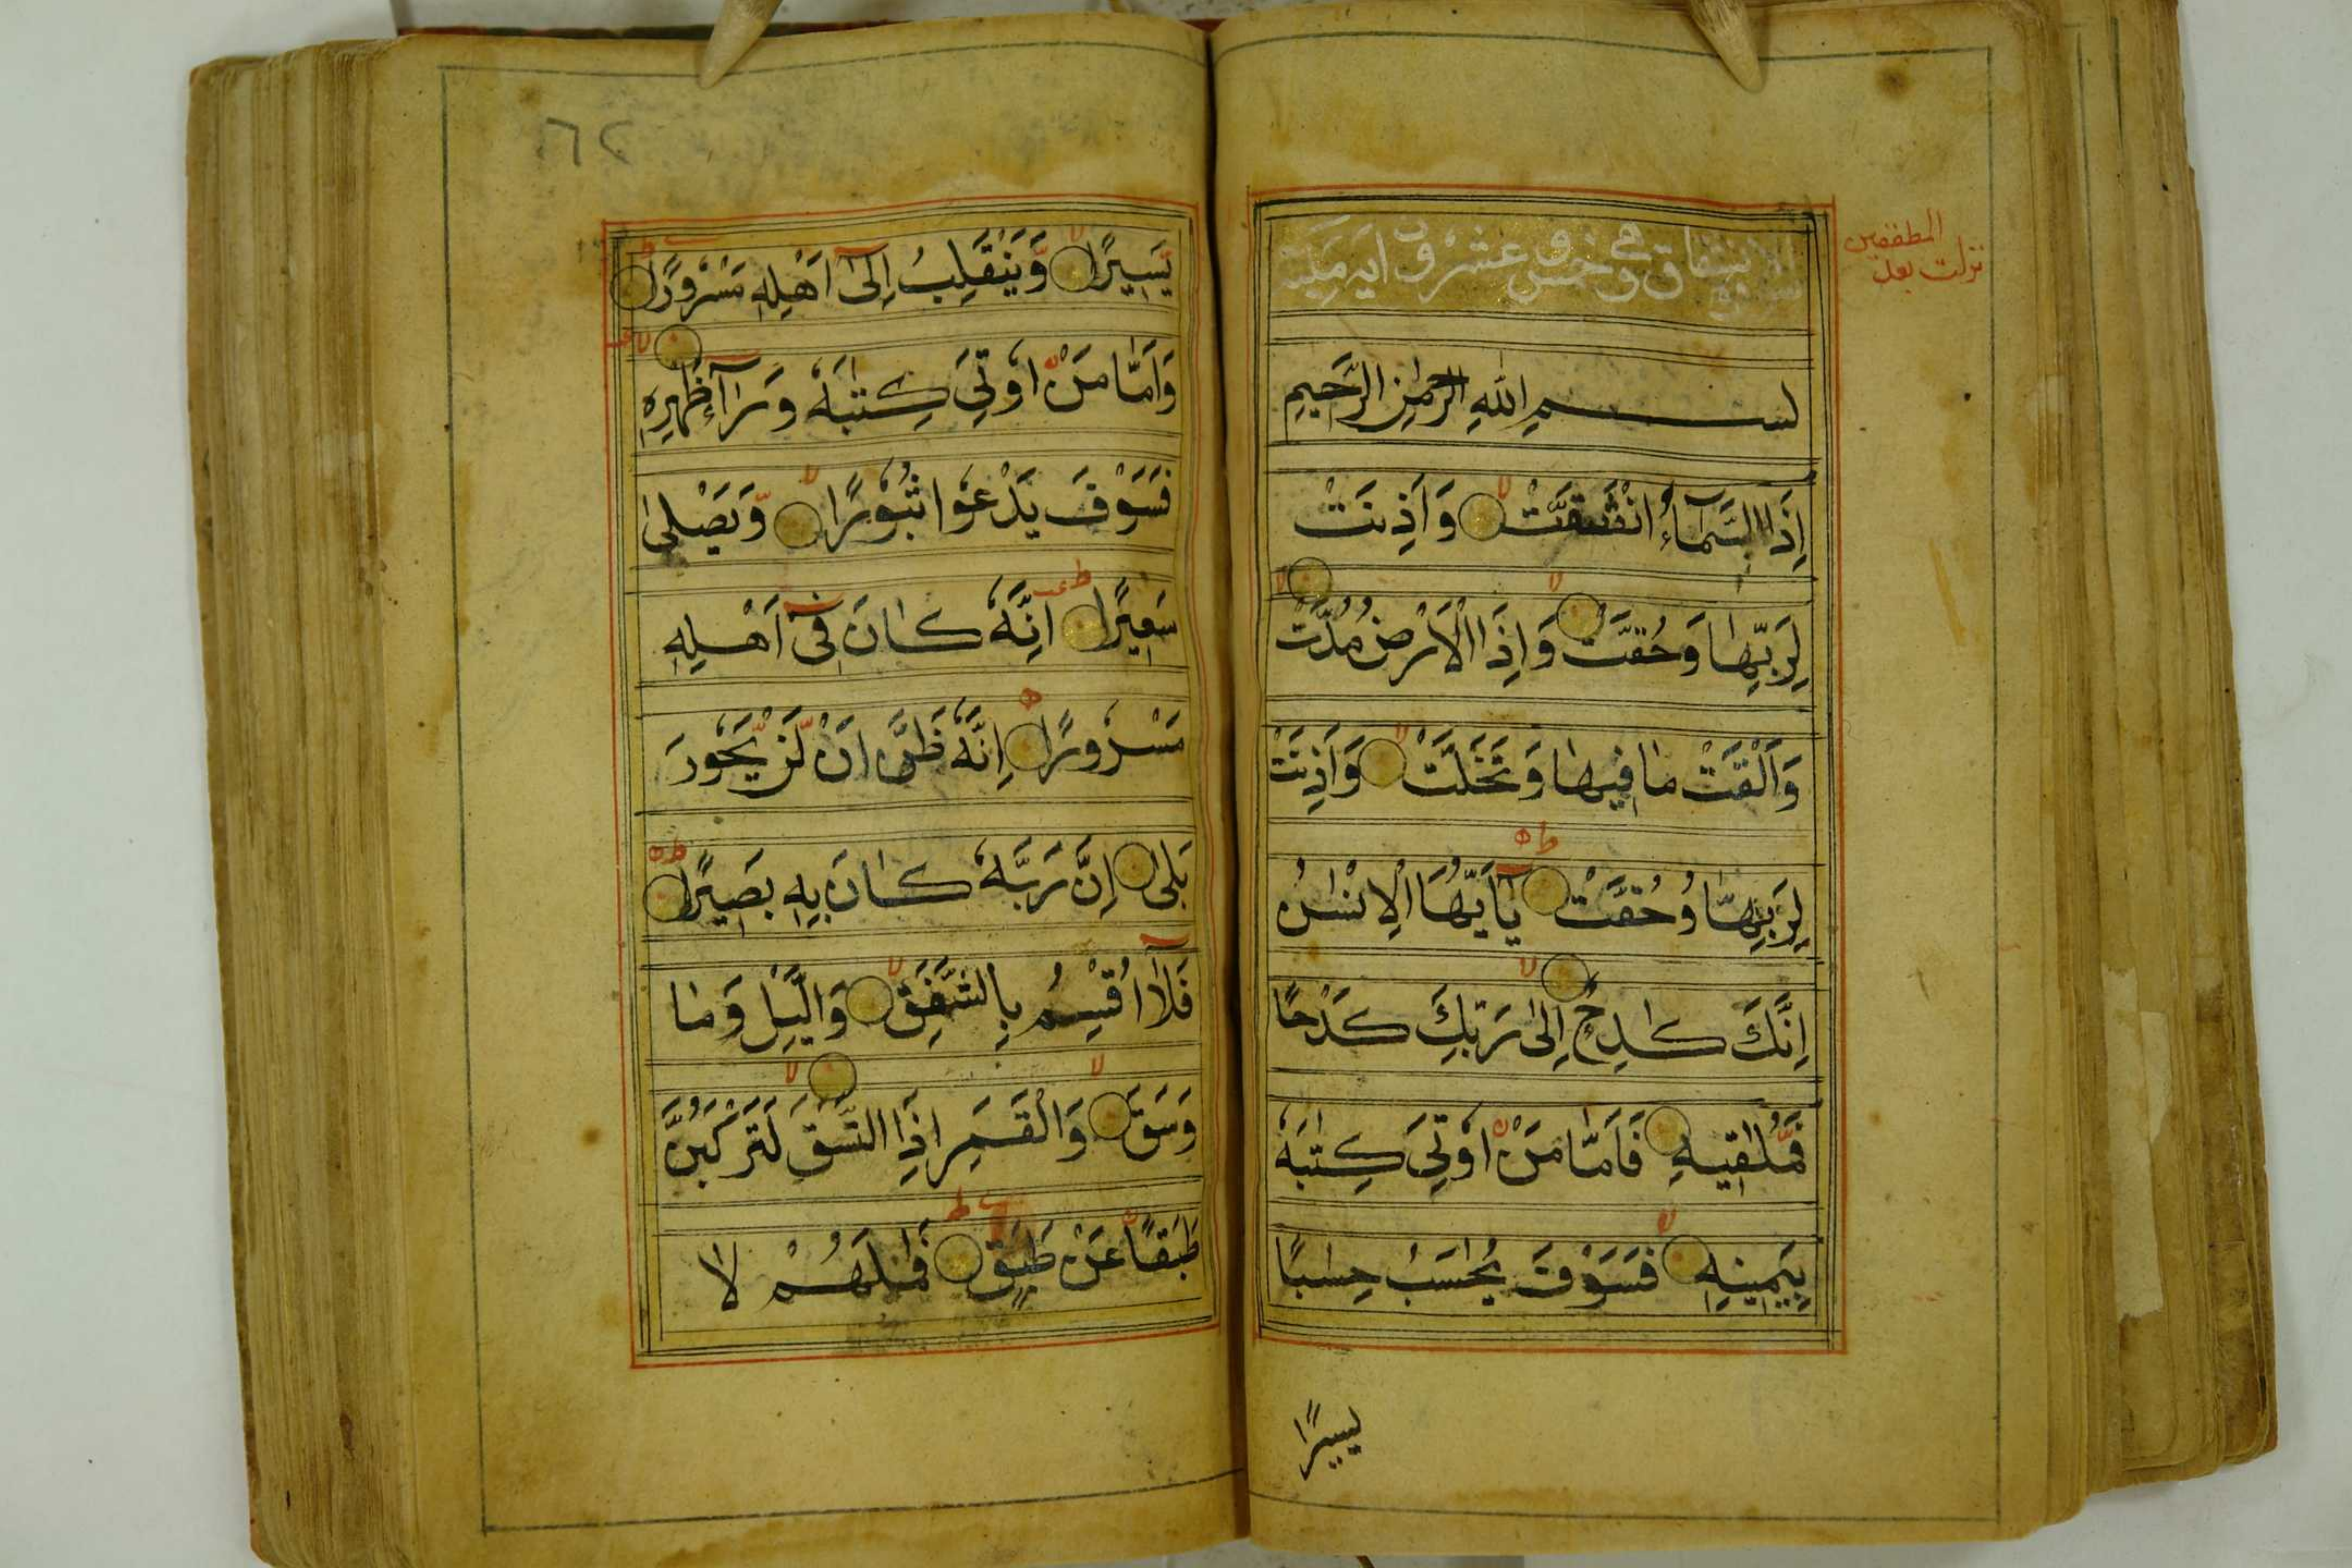 الانشقاق وهي خمس وعشرون آيه مكية
المطففين
نزلت بعد
بسم اللهِ الرحمٰنِ الرَّحيمِ
اِذَا السَّمَآءُ انْشَقَّتْ وَاَذِنَتْ
لِرَبِّهَا وَحُقَّتْ وَاِذَا الْاَرْضُ مُدَّتْ
وَاَلْقَتْ مَا فِيهَا وَتَخَلَّتْ وَاَذِنَتْ
لِرَبِّهَا وَحُقَّتْ يٰٓاَيُّهَا الْاِنْسٰنُ
اِنَّكَ كَادِحٌ اِلٰى رَبِّكَ كَدْحًا
فَمُلٰقِيهِ فَاَمَّا مَنْ اُوتِيَ كِتٰبَهٗ
بِيَمِينِهٖ فَسَوْفَ يُحَاسَبُ حِسَابًا
يسيرًا
٦٢
يَسِيرًا وَيَنْقَلِبُ اِلٰٓى اَهْلِهٖ مَسْرُورًا
وَاَمَّا مَنْ اُوتِيَ كِتٰبَهٗ وَرَآءَ ظَهْرِهٖ
فَسَوْفَ يَدْعُوا ثُبُورًا وَيَصْلٰى
سَعِيرًا اِنَّهٗ كَانَ فِيٓ اَهْلِهٖ
مَسْرُورًا اِنَّهٗ ظَنَّ اَنْ لَنْ يَحُورَ
بَلٰى اِنَّ رَبَّهٗ كَانَ بِهٖ بَصِيرًا
فَلَآ اُقْسِمُ بِالشَّفَقِ وَالَّيْلِ وَمَا
وَسَقَ وَالْقَمَرِ اِذَا اتَّسَقَ لَتَرْكَبُنَّ
طَبَقًا عَنْ طَبَقٍ فَمَا لَهُمْ لَا